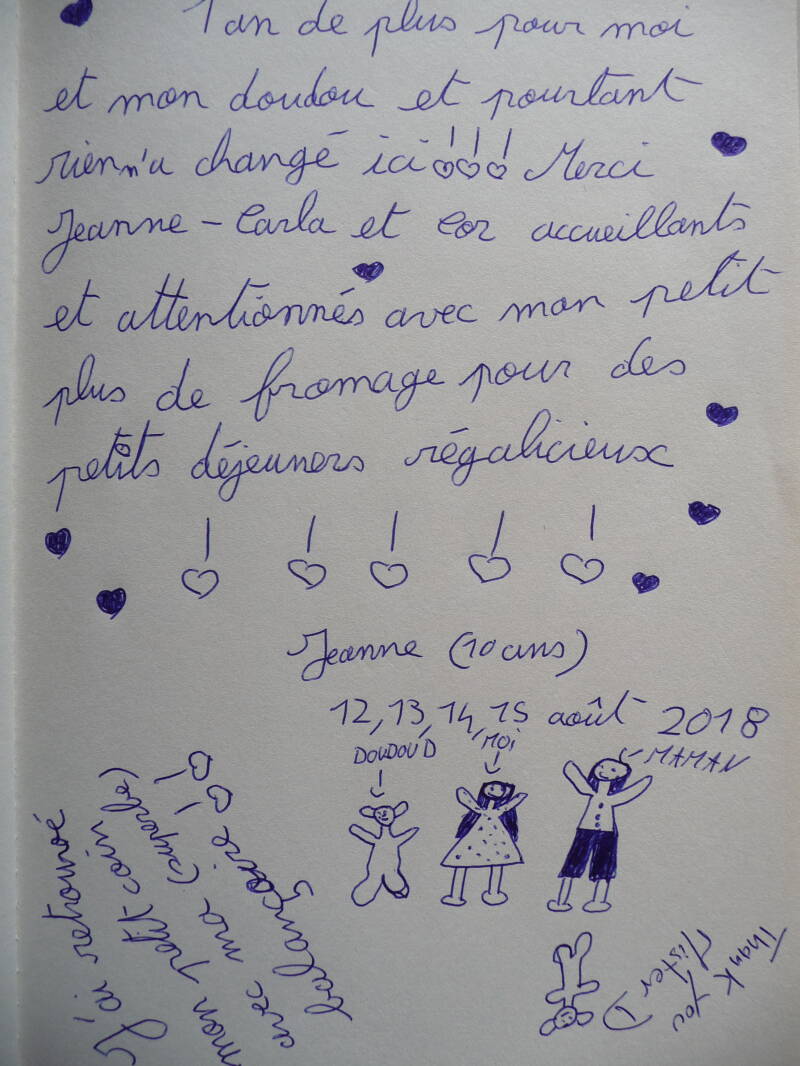 1 an de plus pour moi
et mon doudou et pourtant
rien n'a changé ici !!! Merci
Jeanne-Carla et Cor accueillants
et attentionnés avec mon petit
plus de fromage pour des
petits déjeuners régalicieux
!!!!!
Jeanne (10 ans)
12, 13, 14, 15 août 2018
DOUDOU D
MOI
MAMAN
J'ai retrouvé
mon petit coin
avec ma (superbe)
balançoire !!
Thank you
Mister D